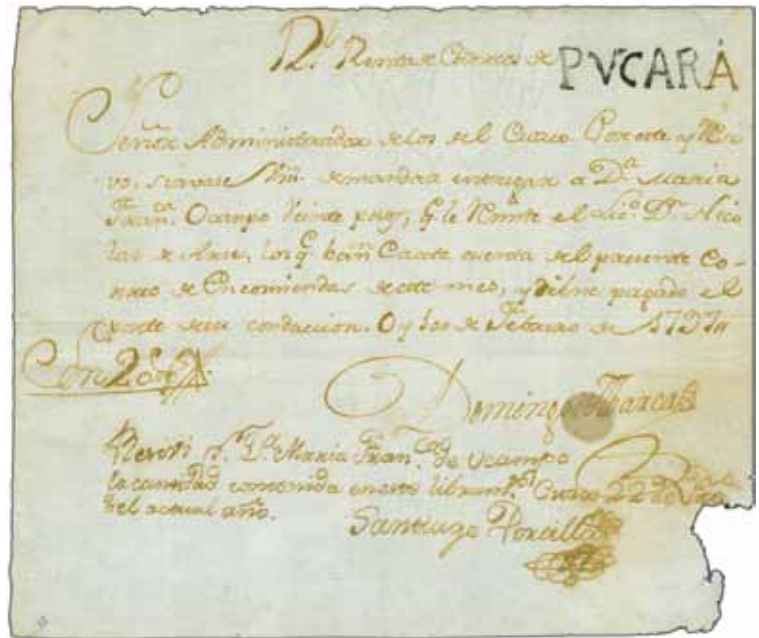 R.l Renta de Correos de PVCARÁ
Señor Administrador de los del Cuzco Por este y
vo, sirvase Vm. mandar entregar a D.a Maria
Fran.ca Ocampo Veinte pesos, q.e le Remite el Lic.do D.n Nico
las de los q.e cuenta del presente Co-
rreo de Encomiendas de este mes, y haverse pagado el
porte de su conduccion. Oy de Febrero de
Son 20 p.s
Domingo Abarca
Recivi p.r D.a Maria Fran.ca de Ocampo
la cantidad contenida en esta libram.ta Cuzco 22 de
del actual año.
Santiago Porcillo